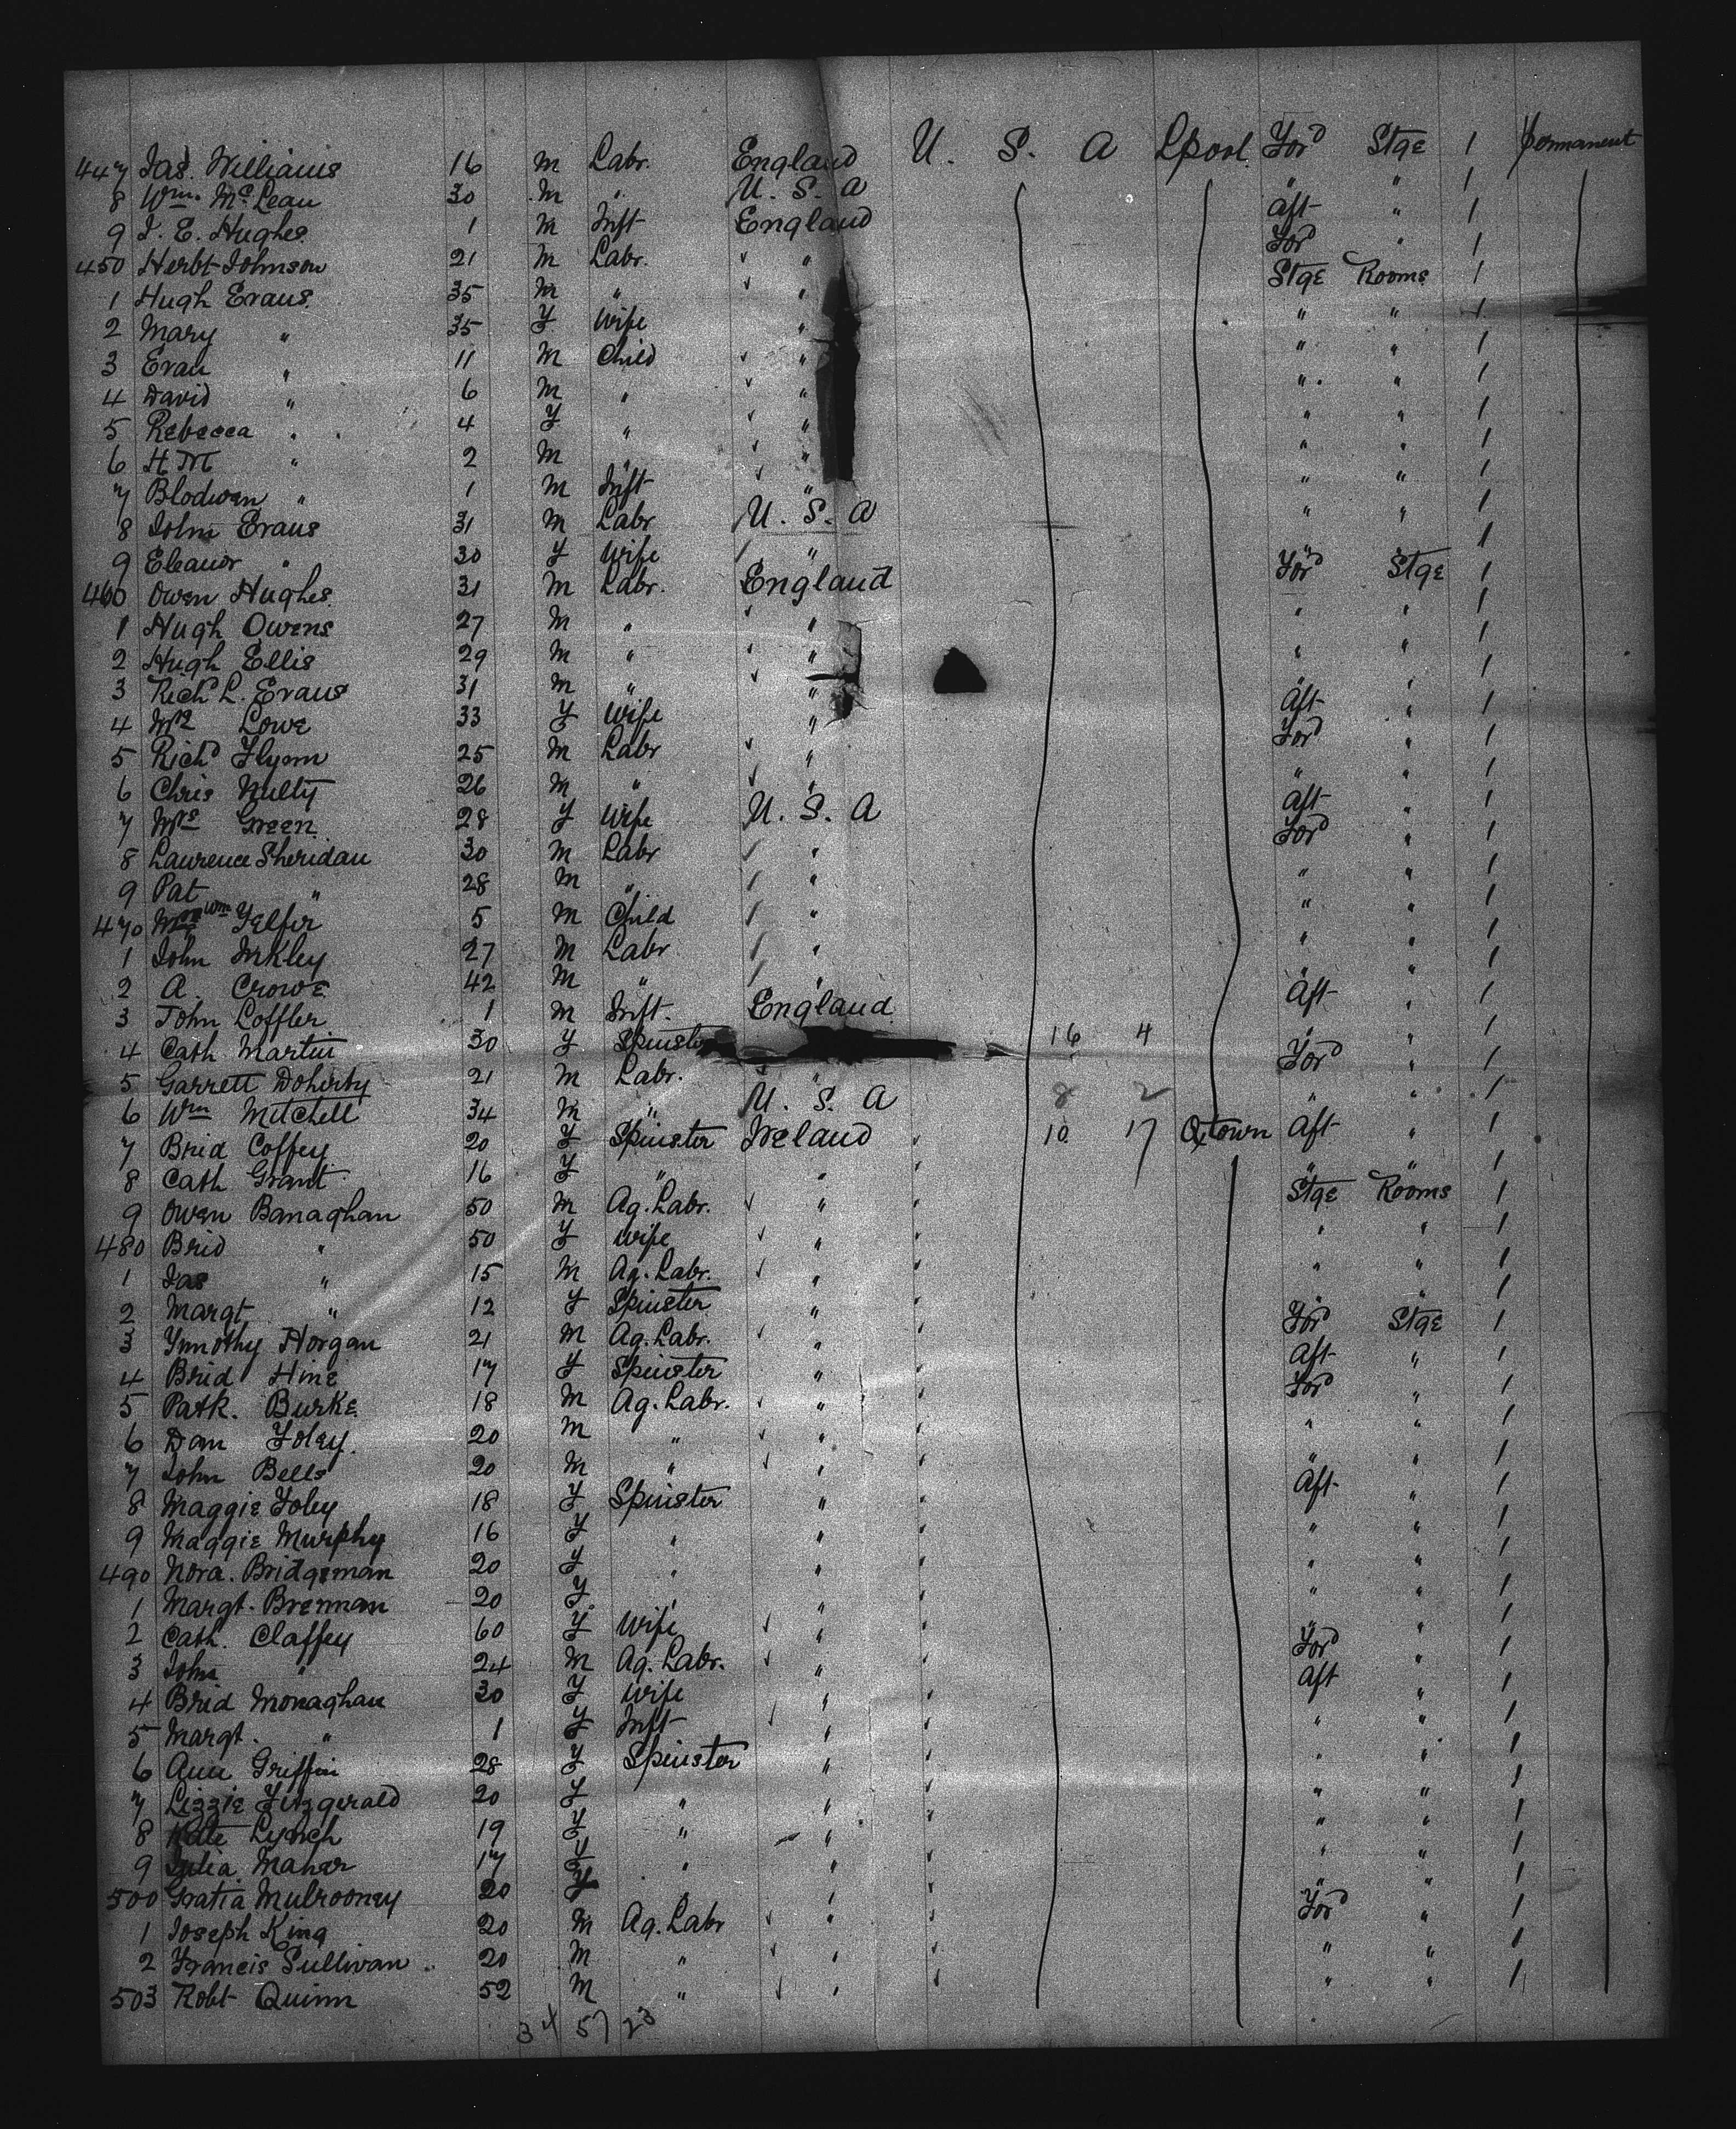 447 Jas. Williams 16 M Labr. England U. S. A Lpool Ford Stge 1 Permanent
8 Wm. McLean 30 M " U. S. A " " 1
9 J. E. Hughes 1 M Inft England Aft " 1
450 Herbt Johnson 21 M Labr. " Ford " 1
1 Hugh Evans 35 M " " Stge Rooms 1
2 Mary " 35 F Wife " " " 1
3 Evan " 11 M Child " " " 1
4 David " 6 M " " " " 1
5 Rebecca " 4 F " " " " 1
6 H M " 2 M " " " " 1
7 Blodwen " 1 M Inft " " " 1
8 John Evans 31 M Labr U. S. A " " 1
9 Eleanor " 30 F Wife " " " 1
460 Owen Hughes 31 M Labr. England Ford Stge 1
1 Hugh Owens 27 M " " " " 1
2 Hugh Ellis 29 M " " " " 1
3 Richd L. Evans 31 M " " " " 1
4 Mrs Lowe 33 F Wife " Aft " 1
5 Richd Flynn 25 M Labr " Ford " 1
6 Chris Nulty 26 M " " " " 1
7 Mrs Green 28 F Wife U. S. A Aft " 1
8 Laurence Sheridan 30 M Labr " Ford " 1
9 Pat " 28 M " " " " 1
470 Wm Telfer 5 M Child " " " 1
1 John Inkley 27 M Labr " " " 1
2 A. Crowe 42 M " " " " 1
3 John Loffler 1 M Inft. England Aft " 1
4 Cath Martin 30 F Spinster 16 4 " " 1
5 Garrett Doherty 21 M Labr. " Ford " 1
6 Wm Mitchell 34 M " U. S. A 8 2 " " 1
7 Brid Coffey 20 F Spinster Ireland 10 17 Qtown Aft " 1
8 Cath Grant 16 F " " " " 1
9 Owen Banaghan 50 M Ag. Labr. " Stge Rooms 1
480 Brid " 50 F Wife " " " 1
1 Jas " 15 M Ag. Labr. " " " 1
2 Margt " 12 F Spinster " " " 1
3 Timothy Horgan 21 M Ag. Labr. " Ford Stge 1
4 Brid Hine 17 F Spinster " Aft " 1
5 Patk. Burke 18 M Ag. Labr. " Ford " 1
6 Dan Foley. 20 M " " " " 1
7 John Bells 20 M " " " " 1
8 Maggie Foley 18 F Spinster " Aft " 1
9 Maggie Murphy 16 F " " " " 1
490 Nora. Bridgeman 20 F " " " " 1
1 Margt. Brennan 20 F " " " " 1
2 Cath. Claffey 60 F Wife " " " 1
3 John " 24 M Ag. Labr. " Ford " 1
4 Brid Monaghan 30 F Wife " Aft " 1
5 Margt. " 1 F Inft " " " 1
6 Ann Griffin 28 F Spinster " " " 1
7 Lizzie Fitzgerald 20 F " " " " 1
8 Kate Lynch 19 F " " " " 1
9 Julia Maher 17 F " " " " 1
500 Gratia Mulrooney 20 F " " " " 1
1 Joseph King 20 M Ag. Labr " Ford " 1
2 Francis Sullivan 20 M " " " " 1
503 Robt Quinn 52 M " " " " 1
34 57 23